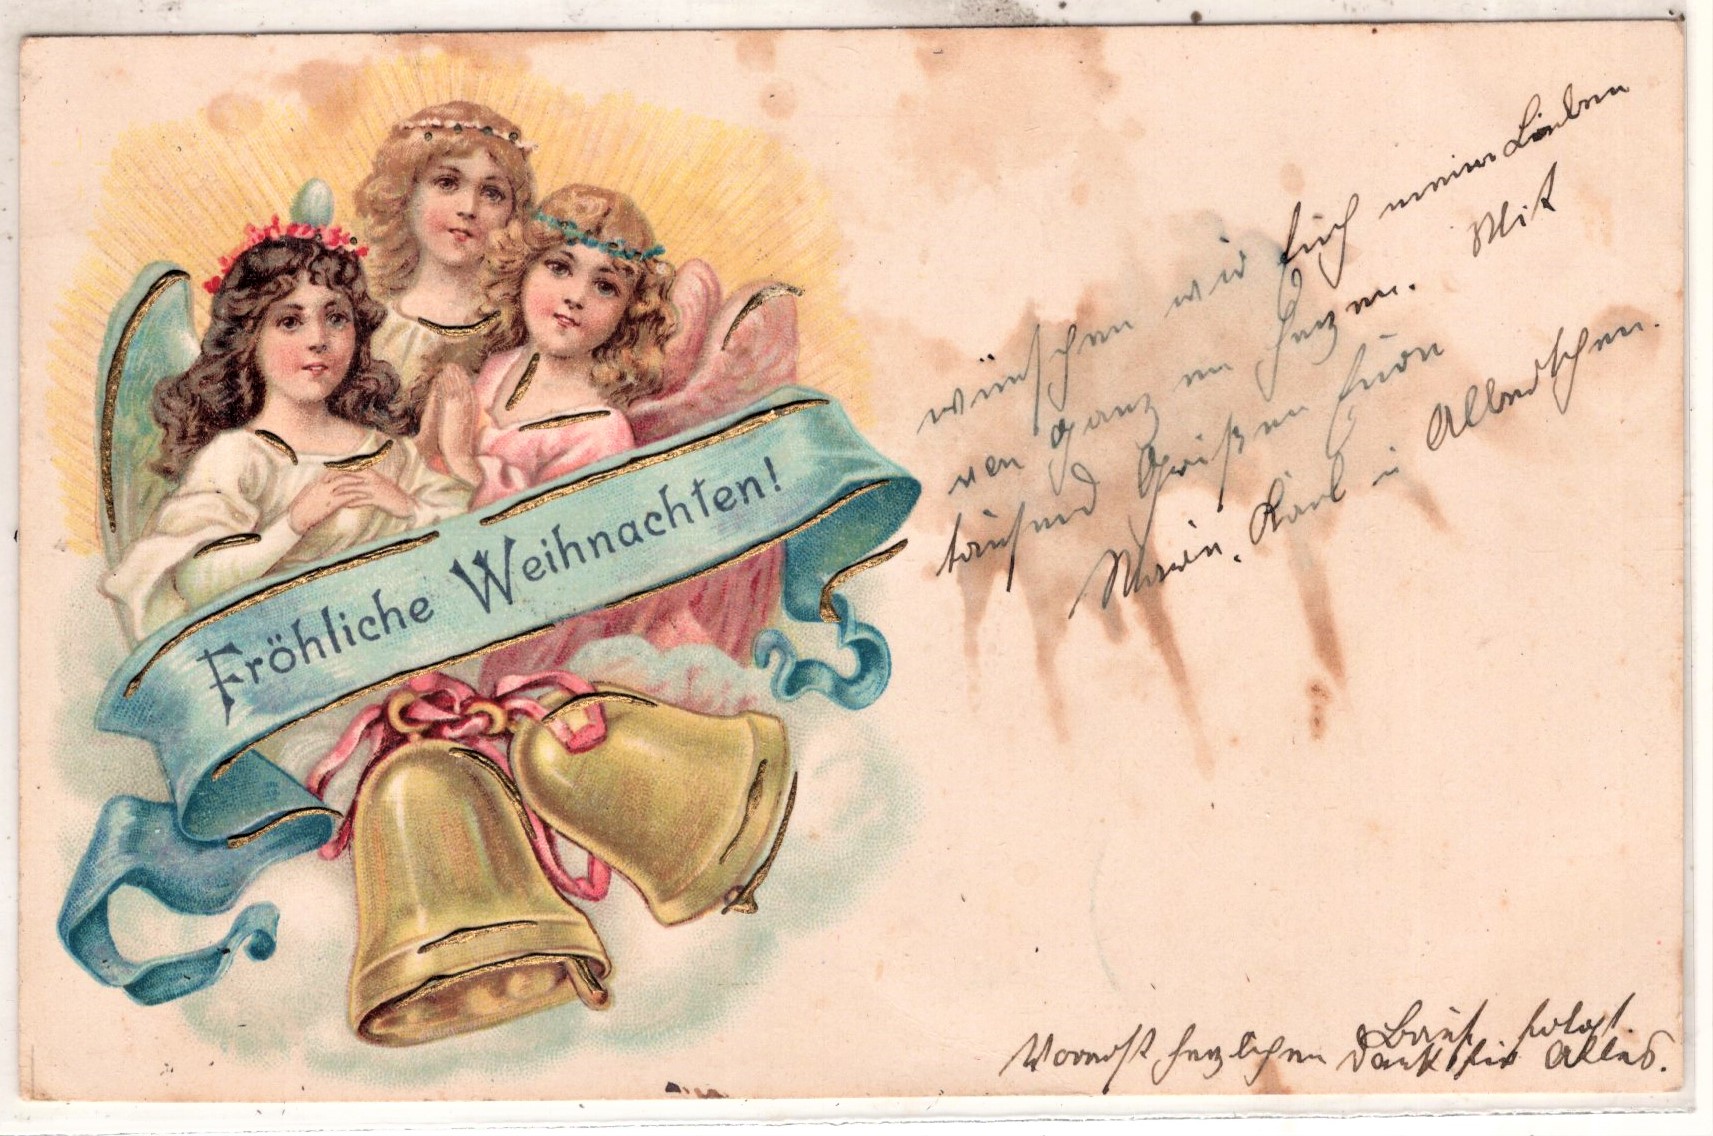 Fröhliche Weihnachten!
wünschen wir Euch meine Lieben
von ganzem Herzen. Mit
tausend Grüßen Eure
Marie. Karl u
Brief folgt.
Vorerst herzlichen Dank für Alles.